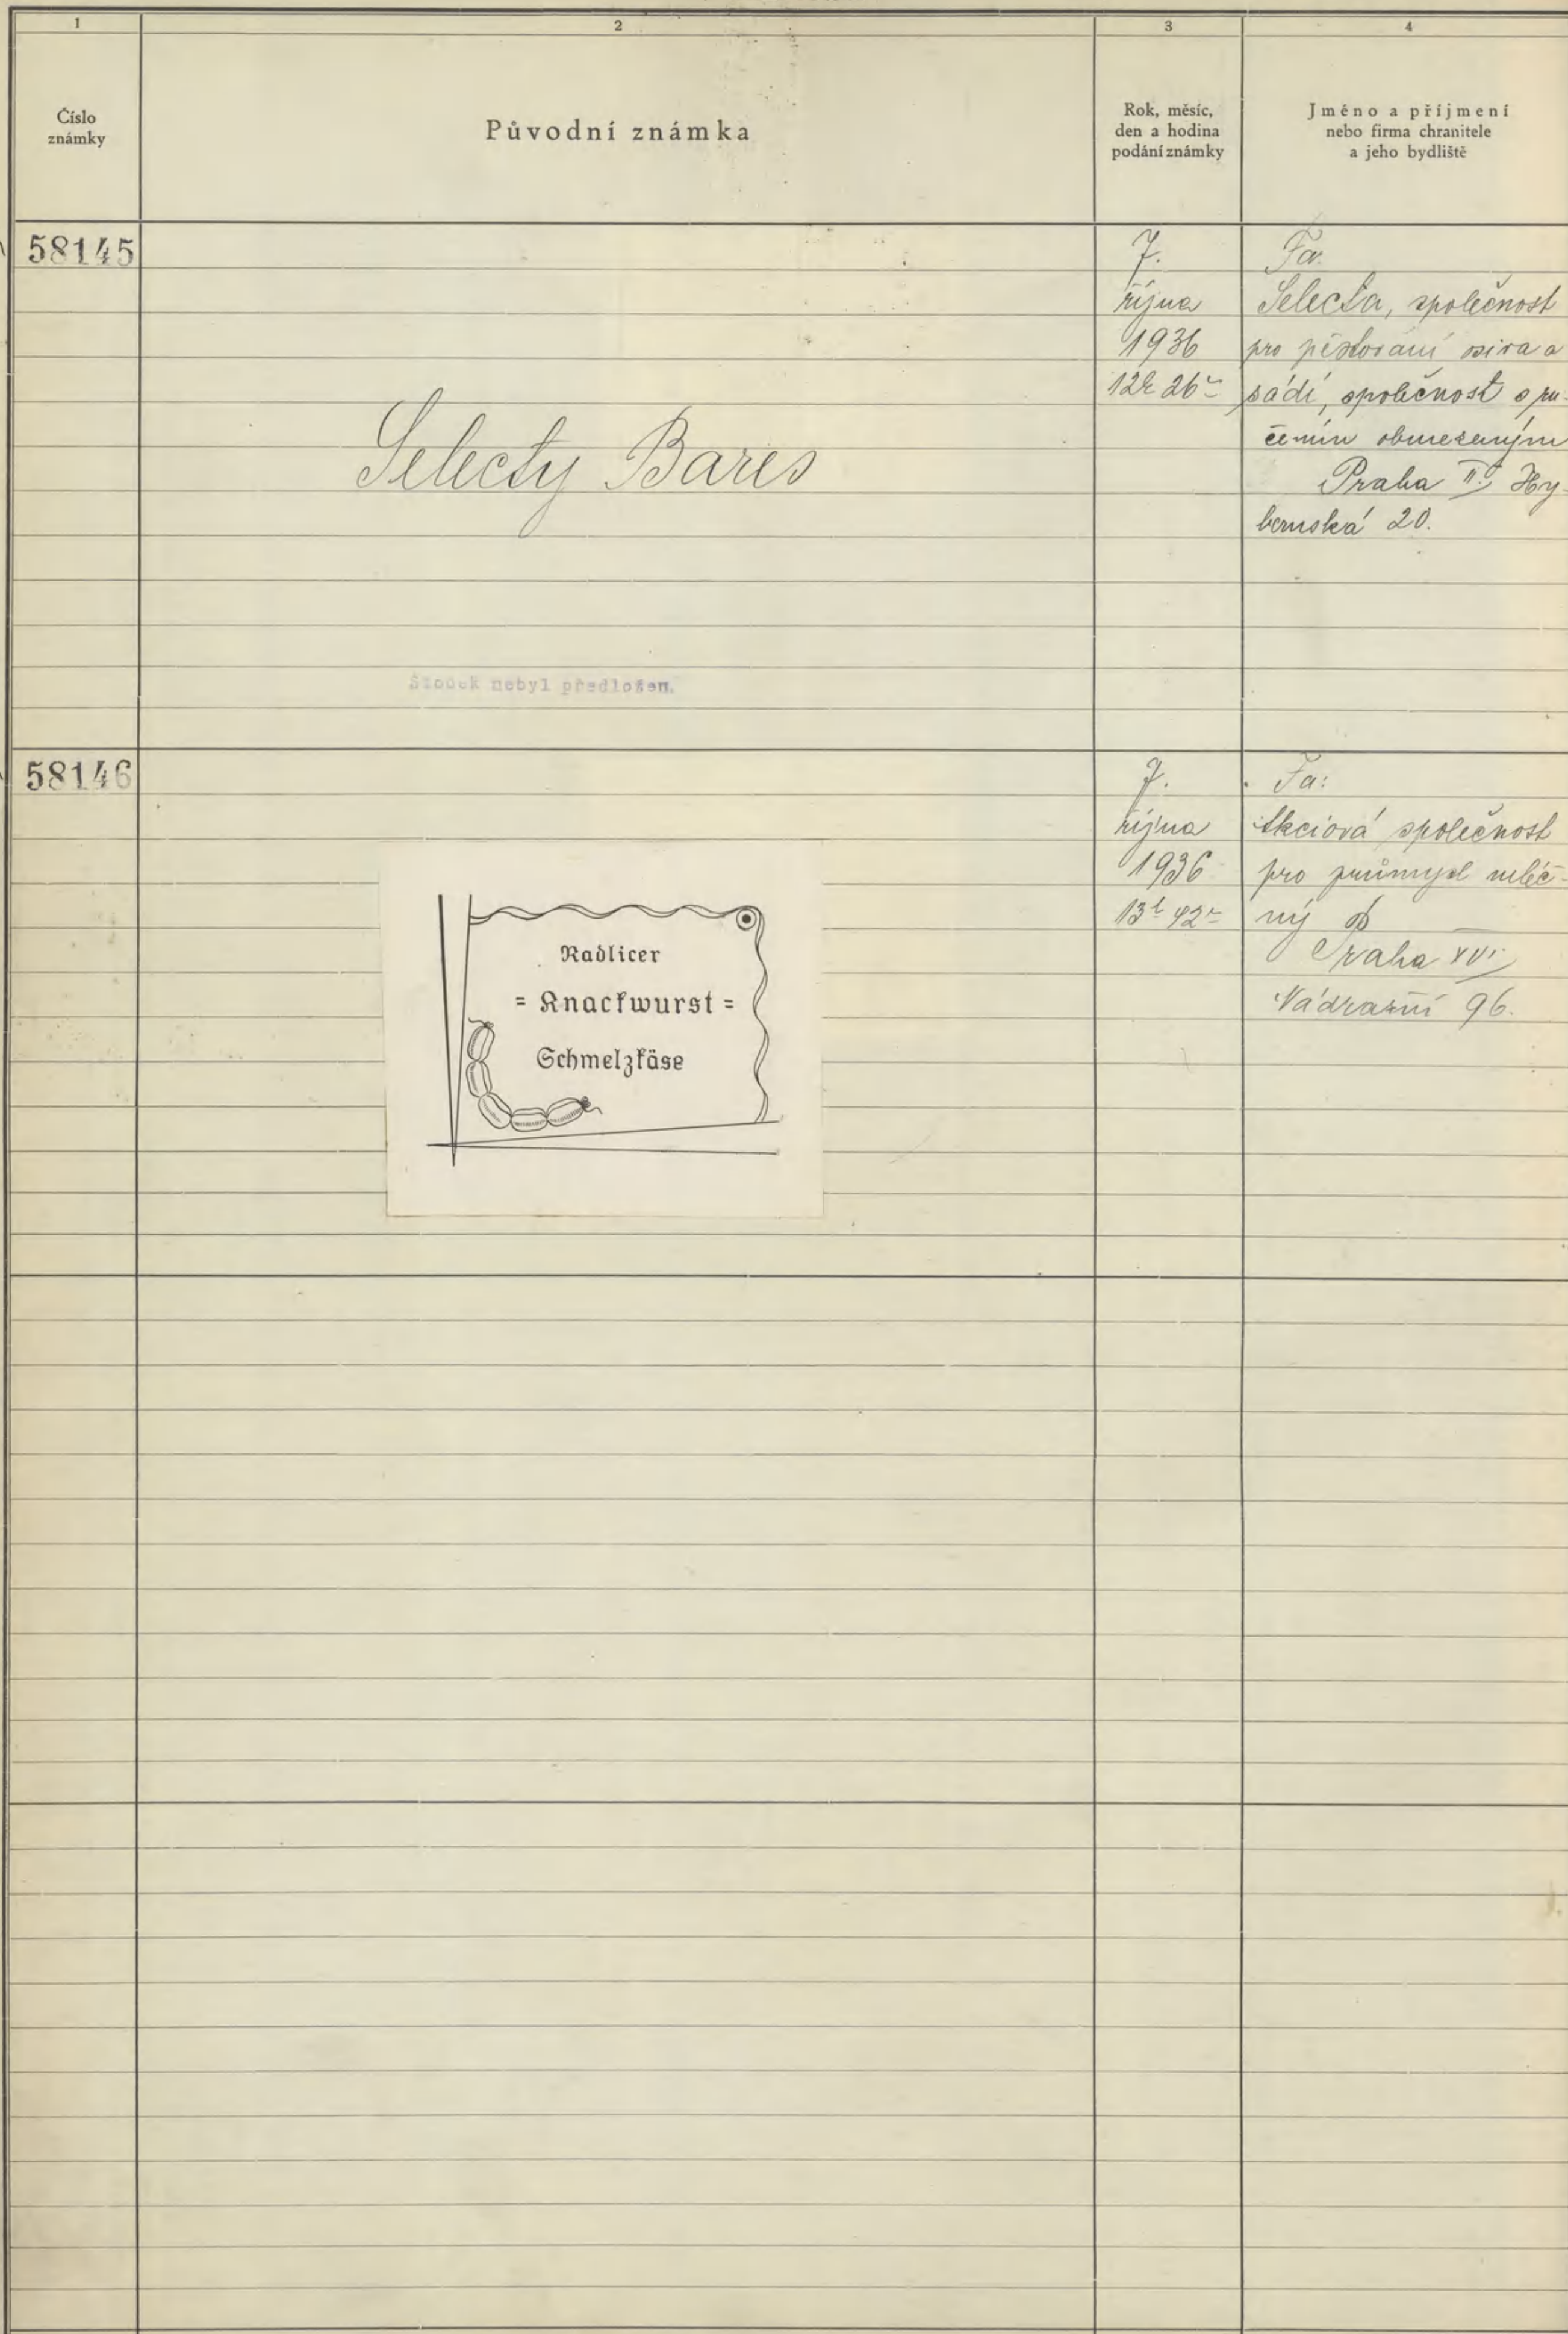 1
2
3
4
Číslo
známky
Původní známka
Rok, měsíc,
den a hodina
podání známky
Jméno a příjmení
nebo firma chranitele
a jeho bydliště
58145
Selecty Bares
Štoček nebyl předložen.
7.
října
1936
12h 26m
Fa.
Selecta, společnost
pro pěstování osiva a
sádí, společnost s ru-
čením obmezeným
Praha II. Hy-
bernská 20.
58146
Radlicer
= Knackwurst =
Schmelzkäse
7.
října
1936
13h 42m
Fa:
Akciová společnost
pro průmysl mléč-
ný
Praha XVI
Nádražní 96.